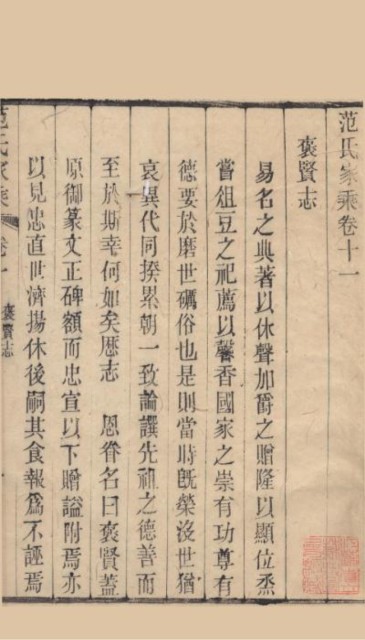 范氏家乘卷十一
褒賢志
易名之典著以休聲加爵之贈隆以顯位烝
嘗俎豆之祀薦以馨香國家之崇有功尊有
德要於磨世礪俗也是則當時旣榮沒世猶
哀異代同揆累朝一致論譔先祖之德善而
至於斯幸何如矣歷志 恩眷名曰褒賢蓋
原御篆文正碑額而忠宣以下贈謚附焉亦
以見忠直世濟揚休後嗣其食報爲不誣焉
范氏家乘 卷十 褒賢志